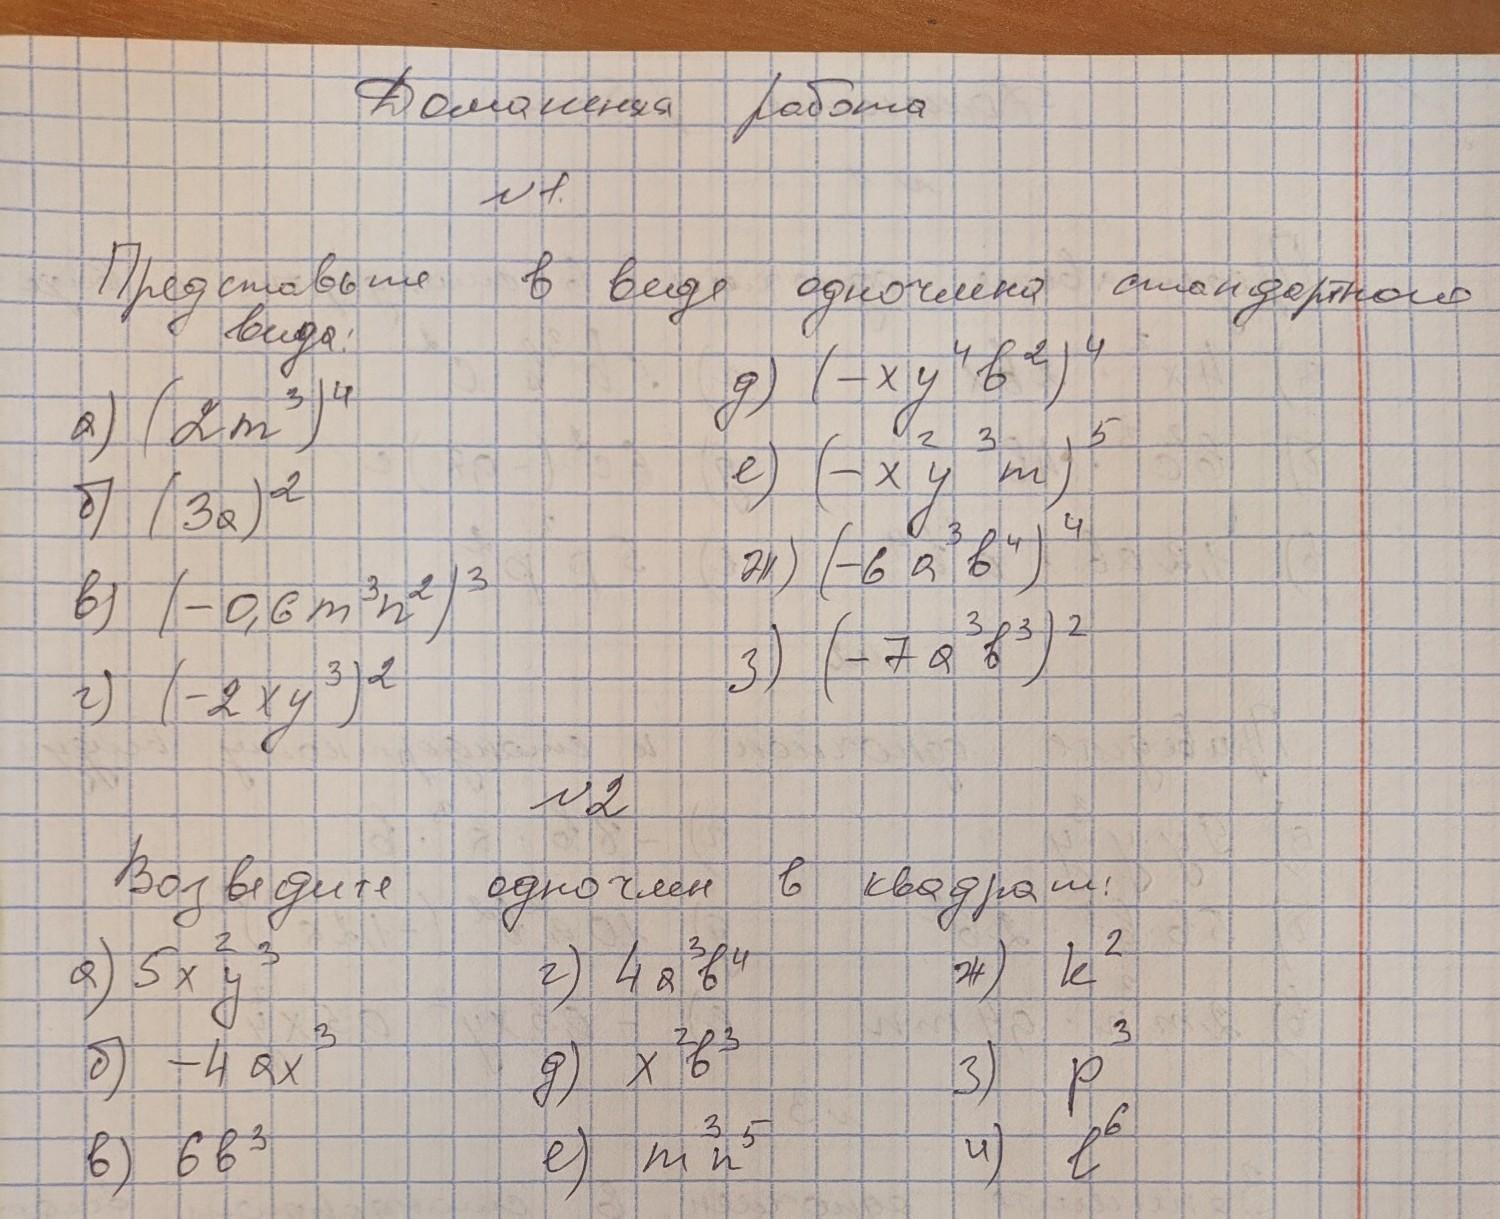 Домашняя работа
№1.
Представьте в виде одночлена стандартного
вида:
а) (2m³)⁴
б) (3a)²
в) (-0,6m³n²)³
г) (-2xy³)²
д) (-xy⁴b²)⁴
е) (-x²y³m)⁵
ж) (-6a³b⁴)⁴
з) (-7a³b³)²
№2
Возведите одночлен в квадрат:
а) 5x²y³
б) -4ax³
в) 6b³
г) 4a³b⁴
д) x²b³
е) m³n⁵
ж) k²
з) p³
и) l⁶